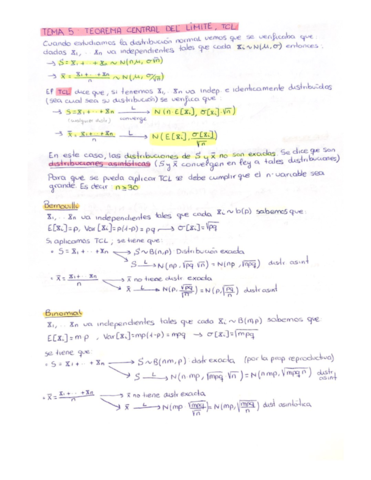 TEMA 5 TEOREMA CENTRAL DEL LÍMITE, TCL
Cuando estudiamos la distribución normal vemos que se verificaba que
dadas X₁, ... Xn va independientes tales que cada Xi ~ N(μ, σ) entonces:
→ S = X₁ + ... + Xn ~ N(nμ, σ√n)
→ X̄ = X₁ + ... + Xn / n ~ N(μ, σ/√n)
El TCL dice que, si tenemos X₁, ... Xn va indep e identicamente distribuidas
(sea cual sea su distribución) se verifica que
→ S = X₁ + ... + Xn —L→ N(n E[Xi], σ[Xi] √n)
converge
→ X̄ = X₁ + ... + Xn / n —L→ N(E[Xi], σ[Xi] / √n)
En este caso, las distribuciones de S y X̄ no son exactas. Se dice que son
distribuciones asintóticas (S y X̄ convergen en ley a tales distribuciones)
Para que se pueda aplicar TCL se debe cumplir que el n variable sea
grande. Es decir n ≥ 30
Bernouilli
X₁, ... Xn va independientes tales que cada Xi ~ b(p) sabemos que:
E[Xi] = p, Var[Xi] = p(1-p) = pq → σ[Xi] = √pq
Si aplicamos TCL, se tiene que:
• S = X₁ + ... + Xn → S ~ B(n, p) Distribución exacta
→ S —L→ N(np, √pq √n) = N(np, √npq) distr asint
• X̄ = X₁ + ... + Xn / n → X̄ no tiene distr exacta
→ X̄ —L→ N(p, √pq / √n) = N(p, √pq/n) distr asint
Binomial
X₁, ... Xn va independientes tales que cada Xi ~ B(m, p) sabemos que
E[Xi] = mp, Var[Xi] = mp(1-p) = mpq → σ[Xi] = √mpq
se tiene que
• S = X₁ + ... + Xn → S ~ B(nm, p) distr exacta (por la prop reproductiva)
→ S —L→ N(n mp, √mpq √n) = N(n mp, √mpq n) distr asint
• X̄ = X₁ + ... + Xn / n → X̄ no tiene distr exacta
→ X̄ —L→ N(mp, √mpq / √n) = N(mp, √mpq/n) dist asintótica